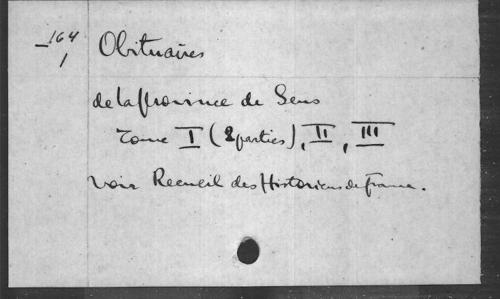 164
1
Obituaires
de la Province de Sens
Tome I (2 parties), II, III
voir Recueil des Historiens de France.